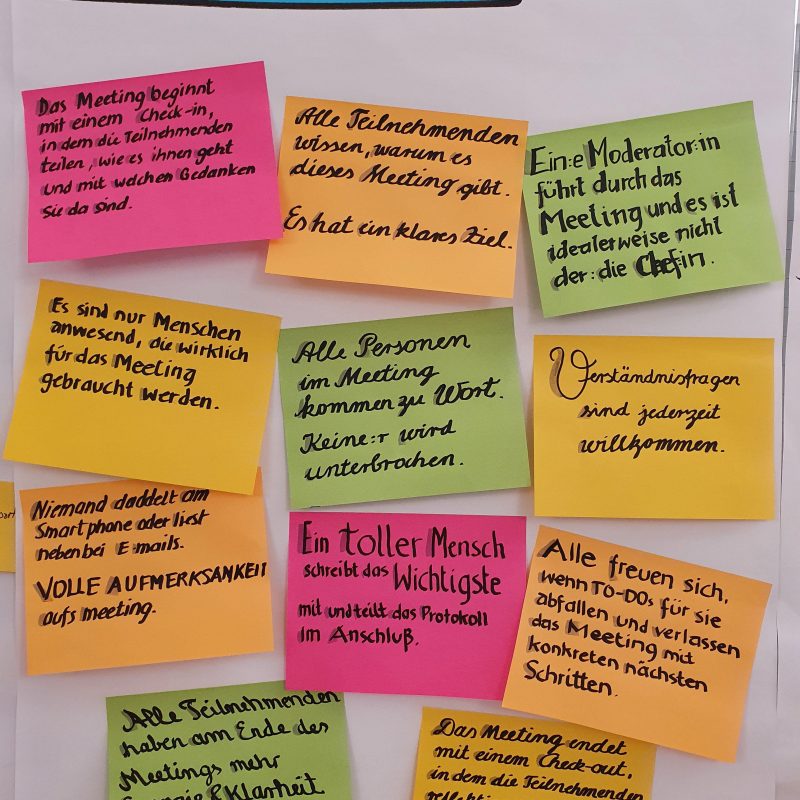 Das Meeting beginnt
mit einem Check-in,
in dem die Teilnehmenden
teilen, wie es ihnen geht
und mit welchen Gedanken
sie da sind.
Alle Teilnehmenden
wissen, warum es
dieses Meeting gibt.
Es hat ein klares Ziel.
Ein:e Moderator:in
führt durch das
Meeting und es ist
idealerweise nicht
der:die Chef:in.
Es sind nur Menschen
anwesend, die wirklich
für das Meeting
gebraucht werden.
Alle Personen
im Meeting
kommen zu Wort.
Keine:r wird
unterbrochen.
Verständnisfragen
sind jederzeit
willkommen.
Niemand daddelt am
Smartphone oder liest
nebenbei E-mails.
VOLLE AUFMERKSAMKEIT
aufs meeting.
Ein toller Mensch
schreibt das Wichtigste
mit und teilt das Protokoll
im Anschluß.
Alle freuen sich,
wenn TO-DOs für sie
abfallen und verlassen
das Meeting mit
konkreten nächsten
Schritten.
Alle Teilnehmenden
haben am Ende des
Meetings mehr
& Klarheit
Das Meeting endet
mit einem Check-out,
in dem die Teilnehmenden